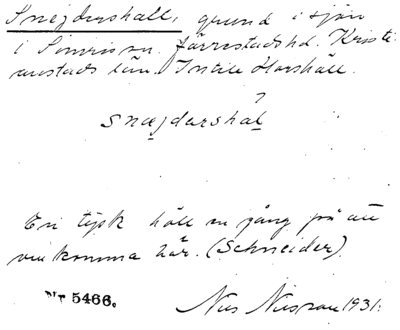 Snejdershall, grund i sjön
i Simris sn. Järrestads hd. Kristi-
anstads län. Intill Horshall.
?
snæjdarshal
En tysk höll en gång på att
omkomma här. (Schneider).
Nr 5466.
Nils Nilsson 1931.